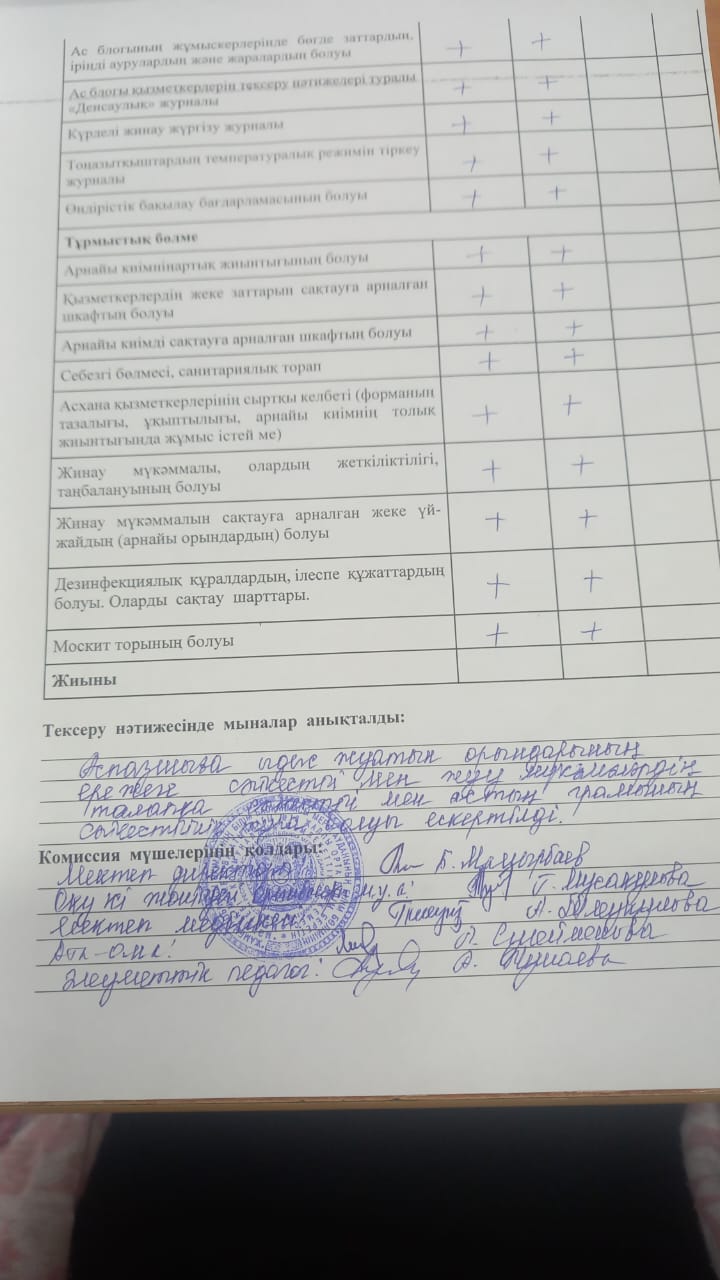 Ас блогының жұмыскерлерінде бөгде заттардың, + +
іріңді аурулардың және жаралардың болуы
Ас блогы қызметкерлерін тексеру нәтижелері туралы + +
«Денсаулық» журналы
Күрделі жинау жүргізу журналы + +
Тоңазытқыштардың температуралық режимін тіркеу + +
журналы
Өндірістік бақылау бағдарламасының болуы + +
Тұрмыстық бөлме
Арнайы киімнінартық жиынтығының болуы + +
Қызметкерлердің жеке заттарын сақтауға арналған + +
шкафтың болуы
Арнайы киімді сақтауға арналған шкафтың болуы + +
Себезгі бөлмесі, санитариялық торап + +
Асхана қызметкерлерінің сыртқы келбеті (форманың + +
тазалығы, ұқыптылығы, арнайы киімнің толық
жиынтығында жұмыс істей ме)
Жинау мүкәммалы, олардың жеткіліктілігі, + +
таңбалануының болуы
Жинау мүкәммалын сақтауға арналған жеке үй- + +
жайдың (арнайы орындардың) болуы
Дезинфекциялық құралдардың, ілеспе құжаттардың + +
болуы. Оларды сақтау шарттары.
Москит торының болуы + +
Жиыны
Тексеру нәтижесінде мыналар анықталды:
Аспазшыға ыдыс жуатын орындарының
ереже мен жуу
талапқа мен астың грамының
болуы ескертілді.
Комиссия мүшелерінің қолдары:
Мектеп директоры Б.
Оқу ісі жөніндегі м.у.а: Г.
мектеп медбикесі А.
Ата-ана: А. Сулейменова
Әлеуметтік педагог: А.